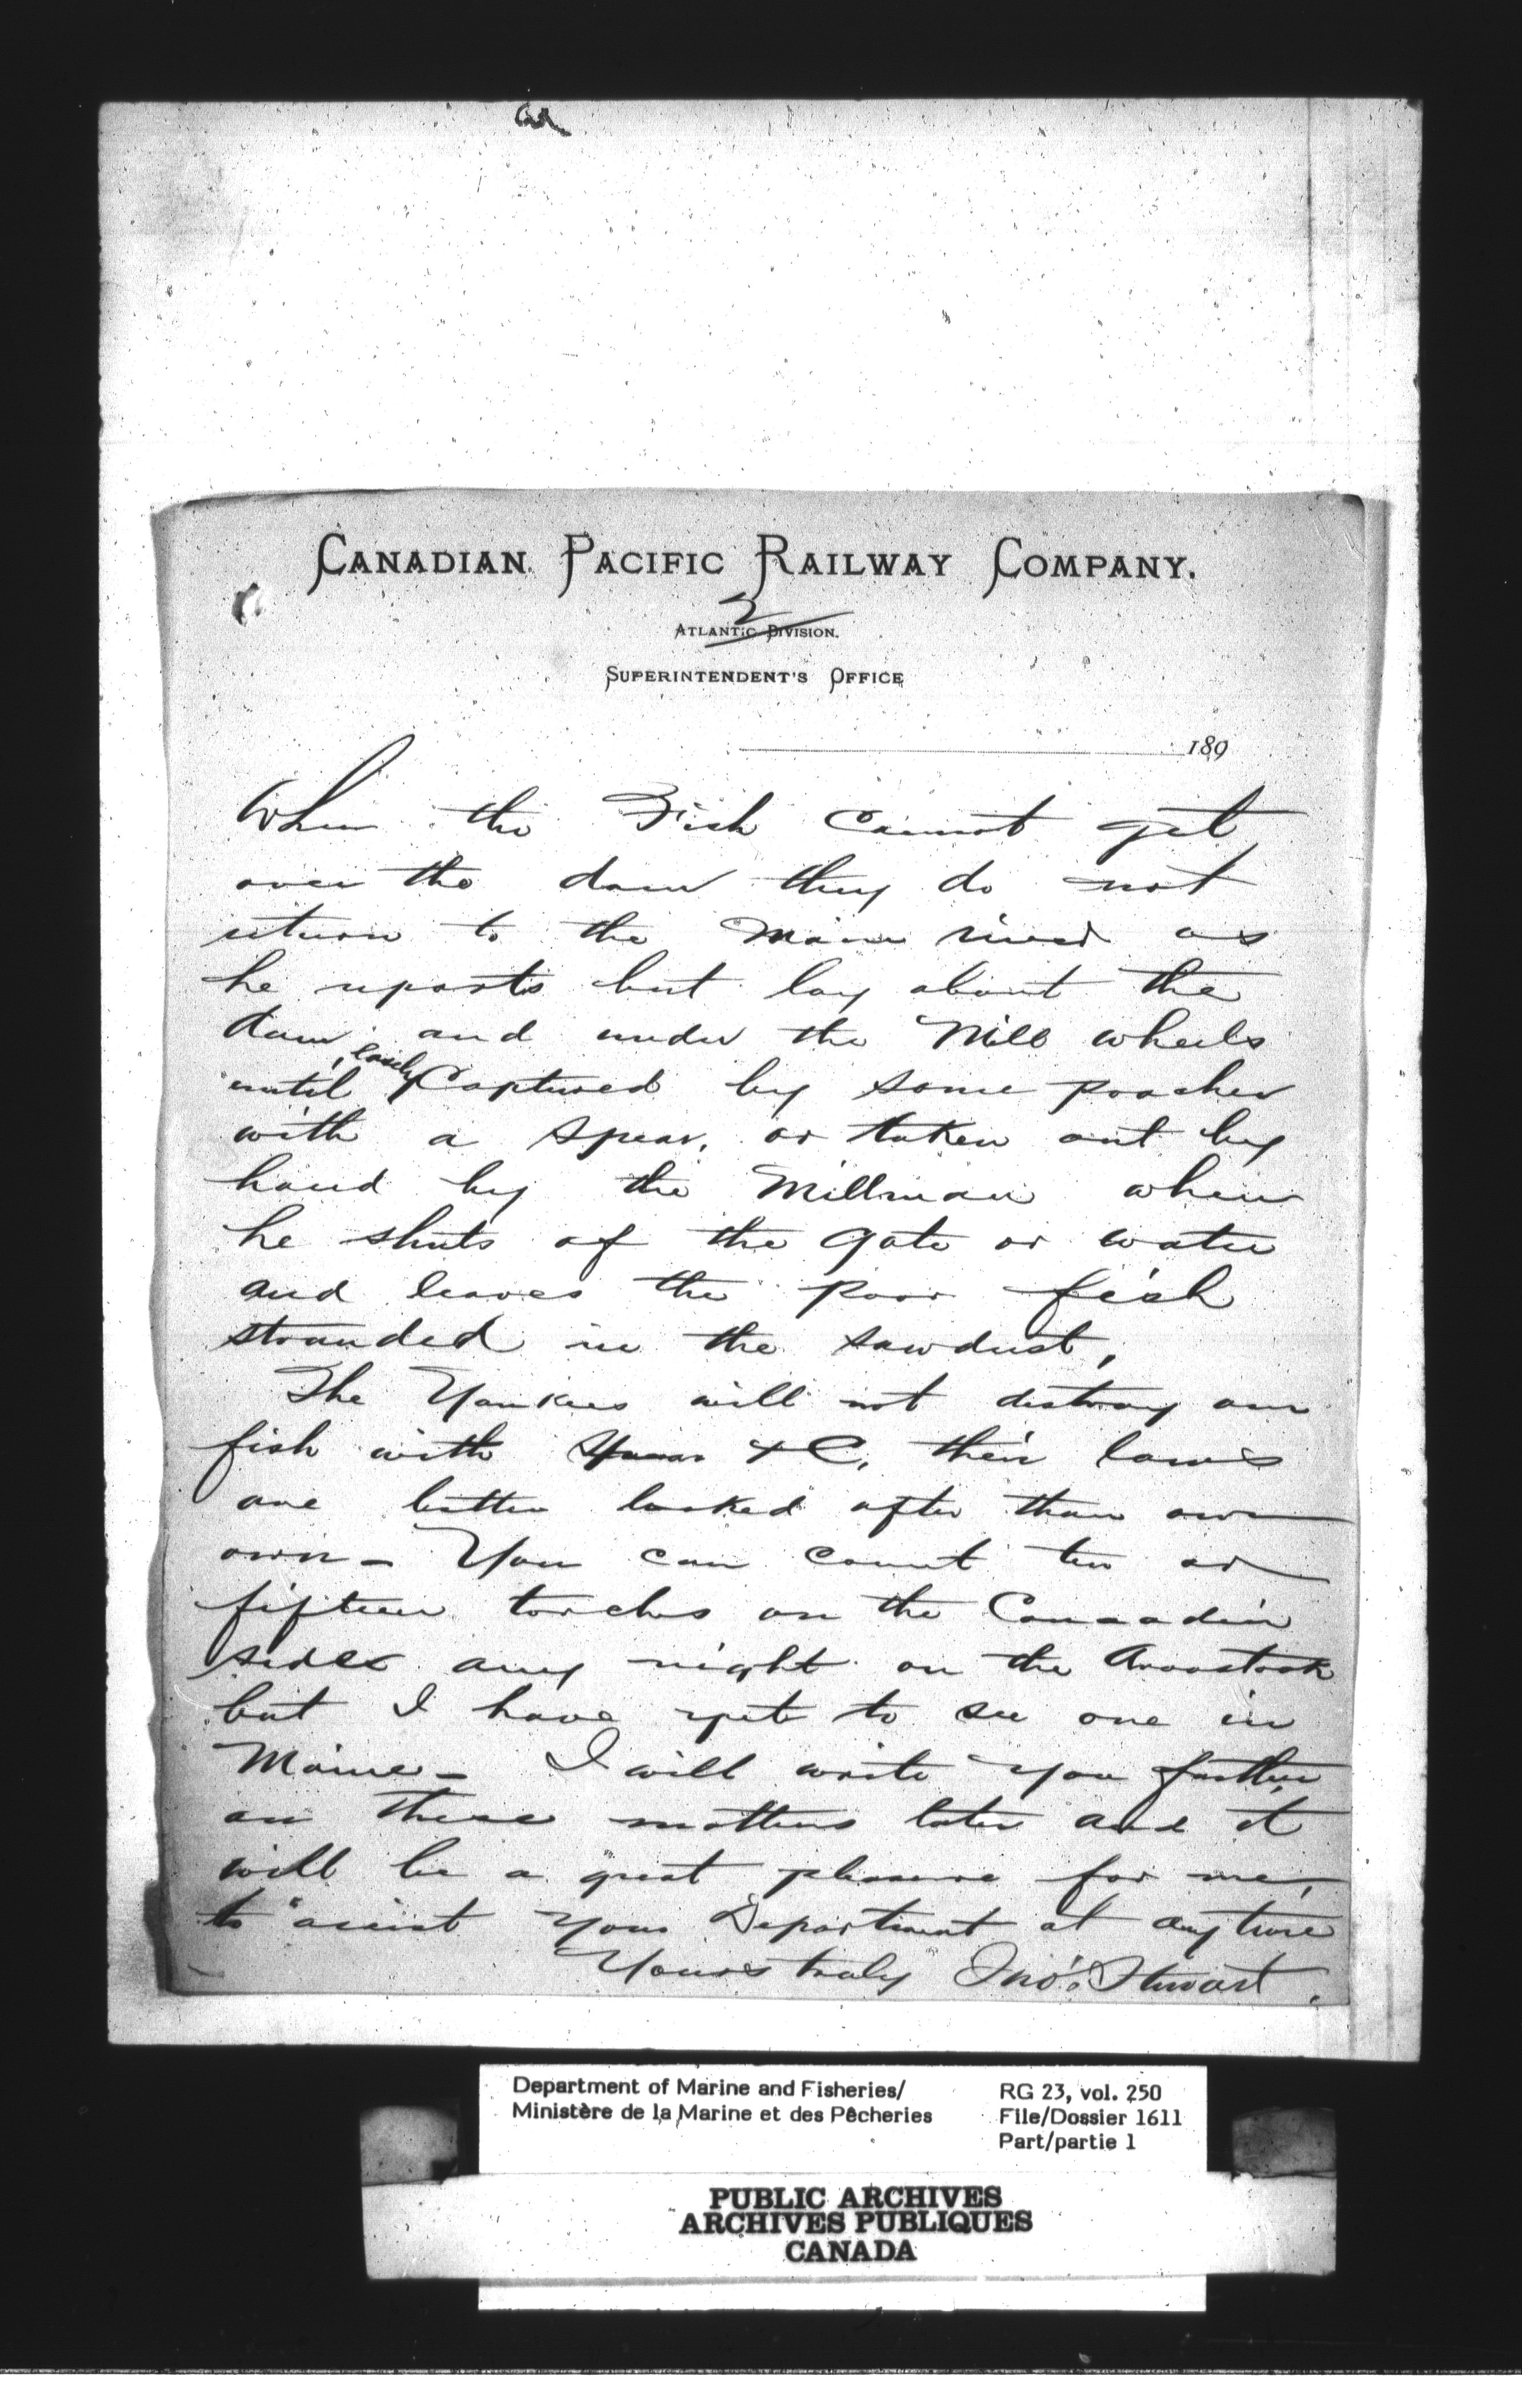 CANADIAN PACIFIC RAILWAY COMPANY.
2
ATLANTIC DIVISION.
SUPERINTENDENT'S OFFICE
189
When the Fish Cannot get
over the dam they do not
return to the Main river as
he reports but lay about the
dam and under the Mill wheels
until easily Captured by some poacher
with a spear, or taken out by
hand by the Millman when
he shuts of the gate or water
and leaves the poor fish
stranded in the sawdust,
The Yankees will not destroy our
fish with Spear &C, their laws
are better looked after than our
own - You can count ten or
fifteen torches on the Canaadian
sides any night on the Aroostook
but I have yet to see one in
Maine - I will write you further
on these matters later and it
will be a great pleasure for me,
to assist your Department at any time
Yours truly Jno. Stewart.
Department of Marine and Fisheries/
Ministère de la Marine et des Pêcheries
RG 23, vol. 250
File/Dossier 1611
Part/partie 1
PUBLIC ARCHIVES
ARCHIVES PUBLIQUES
CANADA